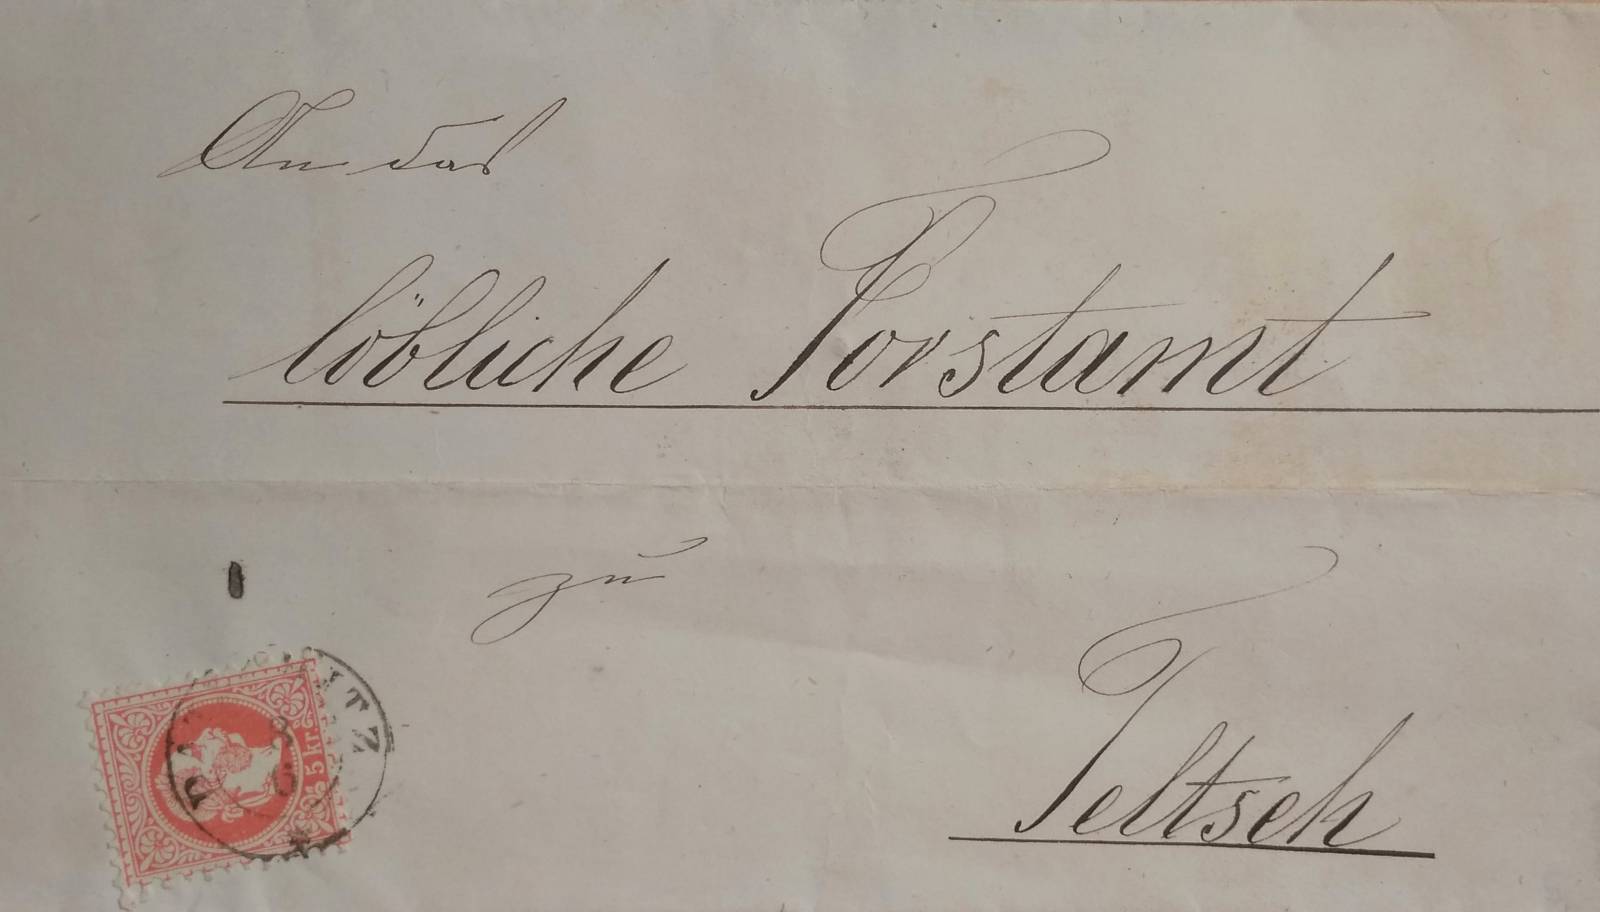 An das
löbliche Forstamt
zu
Teltsch
5 KR